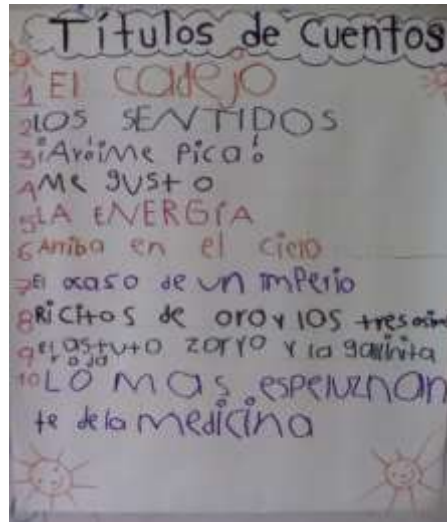 Títulos de cuentos
1 El cadejo
2 LOS SENTIDOS
4 Me gusto
5 LA ENERGÍA
6 Arriba en el cielo
7 El ocaso de un imperio
8 Ricitos de oro y los tres
9 El astuto zorro y la gallinita
roja
10 LO MAS espeluznan
te de la medicina